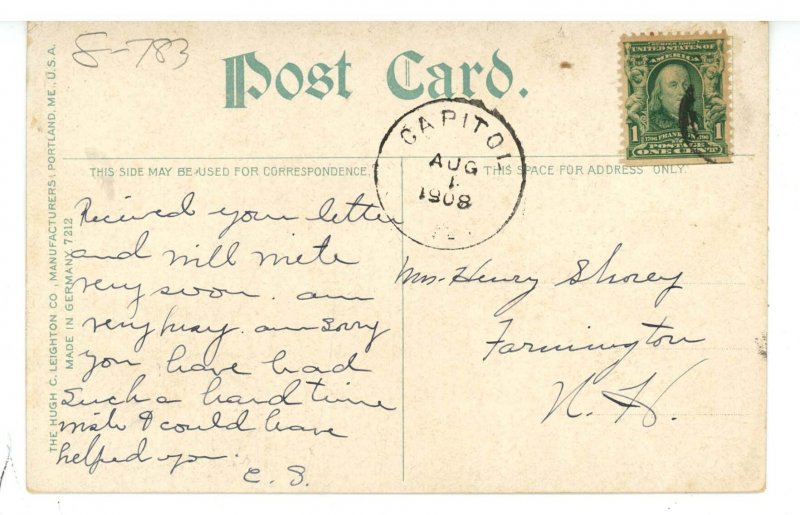 8-783
Post Card.
THE HUGH C. LEIGHTON CO., MANUFACTURERS, PORTLAND, ME., U.S.A.
MADE IN GERMANY 7212
THIS SIDE MAY BE USED FOR CORRESPONDENCE.
THIS SPACE FOR ADDRESS ONLY.
CAPITOL
AUG
1
1908
UNITED STATES OF
AMERICA
1 1
FRANKLIN
POSTAGE
ONE CENT
Recieved your letter
and will write
very soon. am
very busy. am sorry
you have had
such a hard time
wish I could have
helped you.
E. S.
Mrs. Henry Shorey
Farmington
N. H.